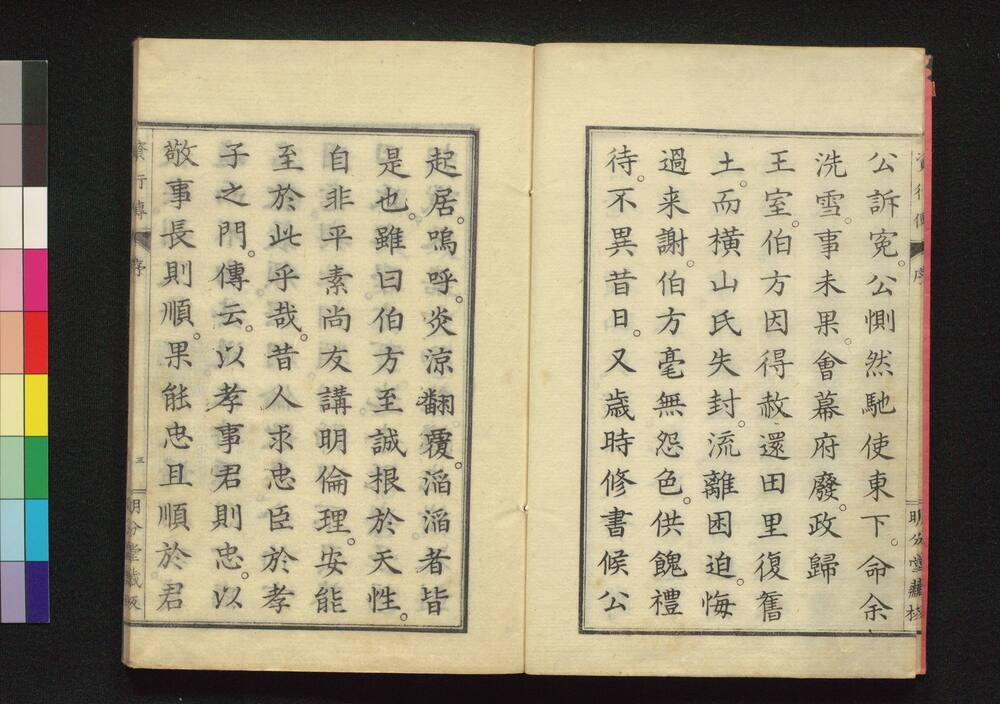 公訴寃。公惻然馳使東下。命余
洗雪。事未果。會幕府廢。政歸
王室。伯方因得赦還田里復舊
土。而横山氏失封。流離困迫。悔
過来謝。伯方毫無怨色。供餽禮
待。不異昔日。又歳時修書候公
起居。嗚呼。炎涼翻覆。滔滔者皆
是也。雖曰伯方至誠根於天性。
自非平素尚友講明倫理。安能
至於此乎哉。昔人求忠臣於孝
子之門。傳云。以孝事君則忠。以
敬事長則順。果能忠且順於君
序
三
明分堂蔵板